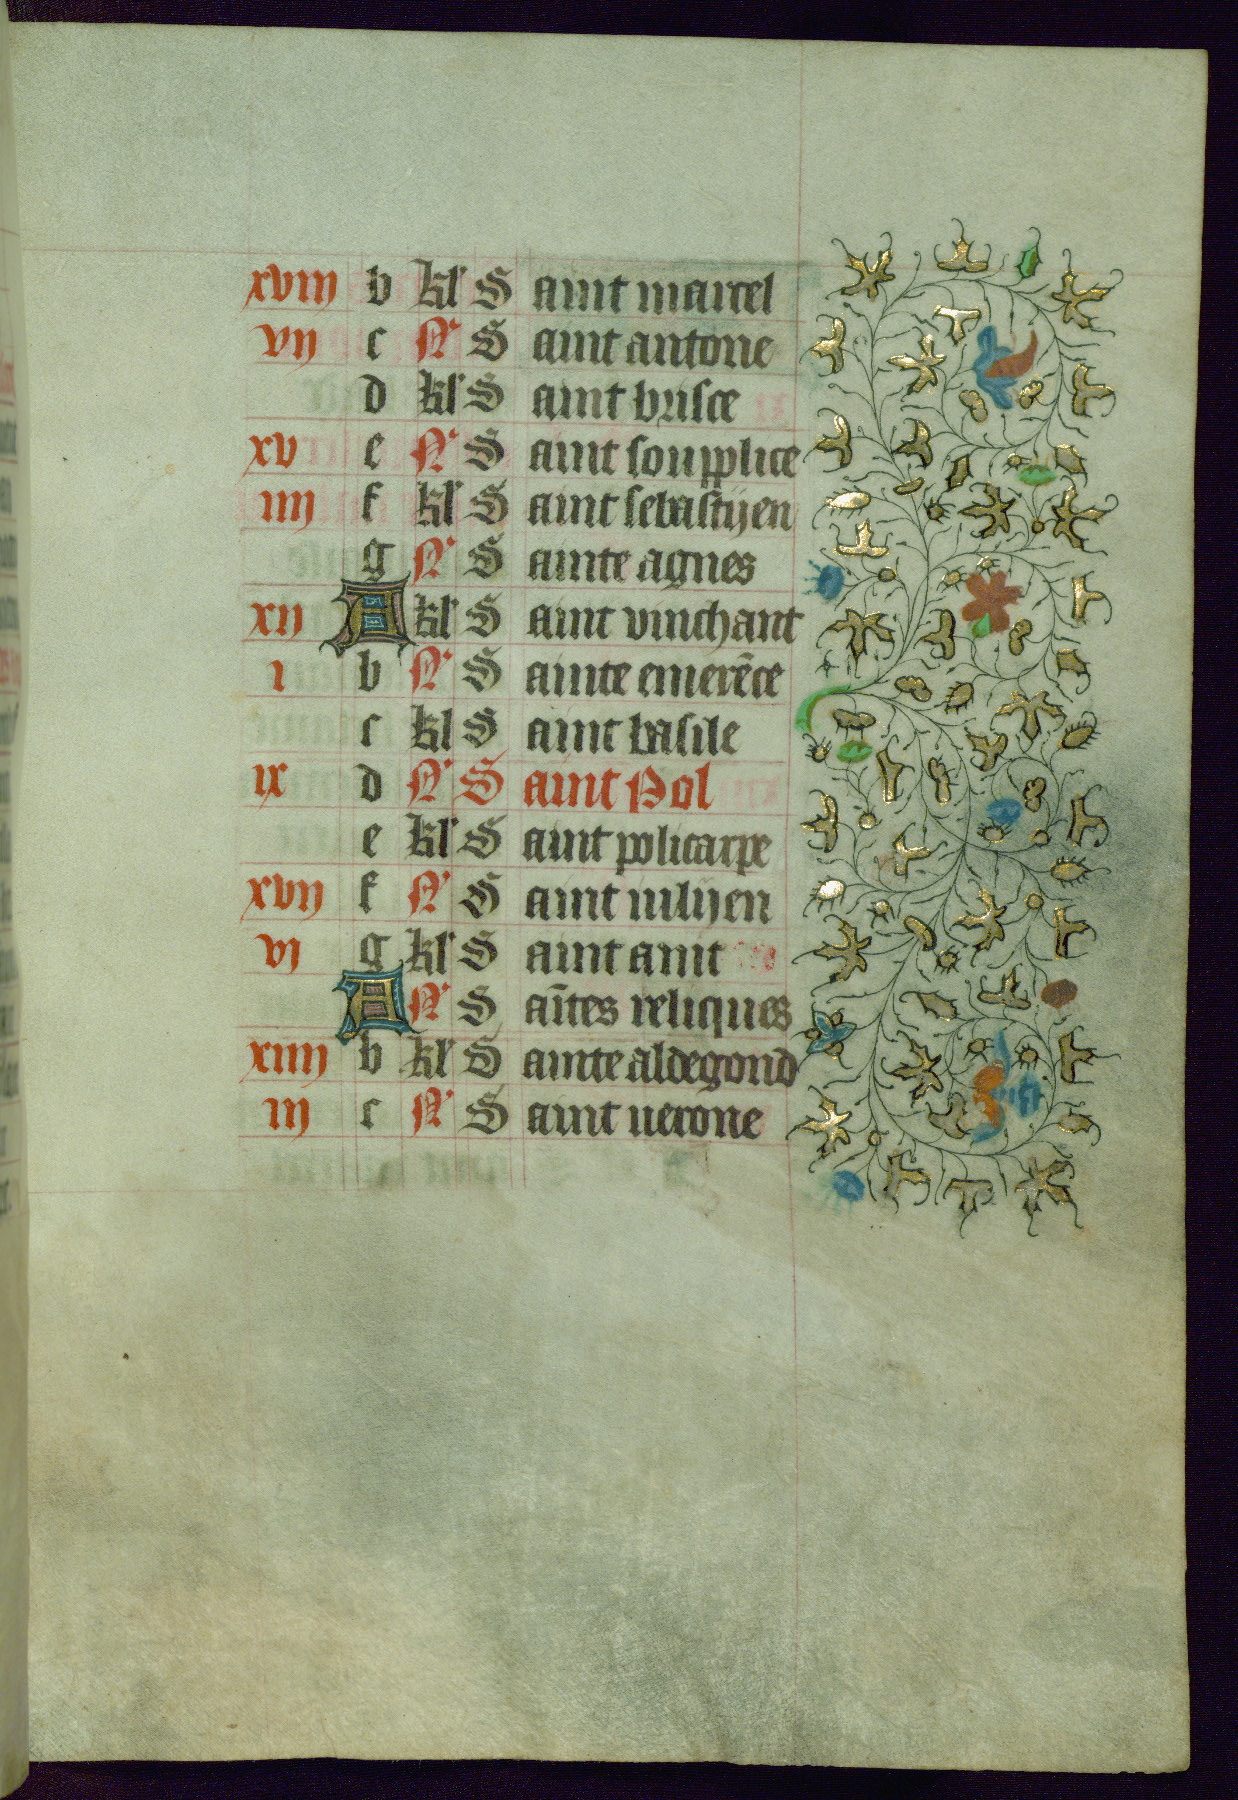 xviij b kl' S aint marcel
vij c N' S aint antone
d kl' S aint brisce
xv e N' S aint soupplice
iiij f kl' S aint sebastijen
g N' S ainte agnes
xij A kl' S aint vinchant
i b N' S ainte emerēce
c kl S aint basile
ix d N' S aint Pol
e kl' S aint policarpe
xvij f N' S aint iulijen
vi g kl' S aint amt
A N' S aītes reliques
xiiij b kl' S ainte aldegond
iij c N' S aint verone